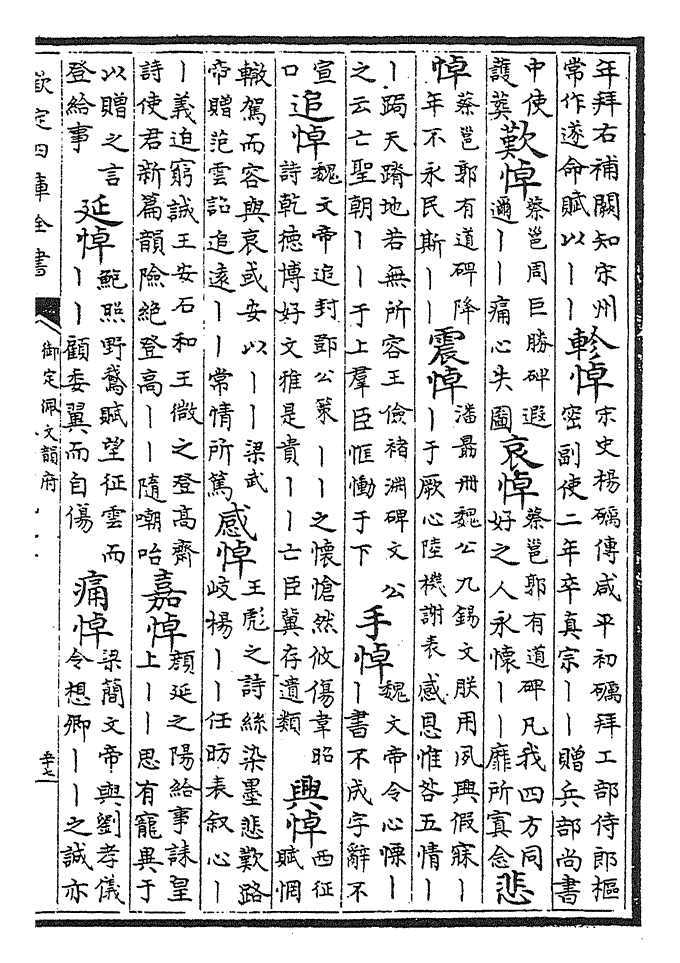 年拜右補闕知宋州
常作遂命賦以丨丨
軫悼
宋史楊礪傳咸平初礪拜工部侍郎樞
密副使二年卒真宗丨丨贈兵部尚書
中使
護葬
歎悼
蔡邕周巨勝碑遐
邇丨丨痛心失圖
哀悼
蔡邕郭有道碑凡我四方同
好之人永懷丨丨靡所寘念
悲
悼
蔡邕郭有道碑降
年不永民斯丨丨
震悼
潘勗冊魏公九錫文朕用夙興假寐丨
丨于厥心陸機謝表感恩惟咎五情丨
丨跼天蹐地若無所容王儉褚淵碑文公
之云亡聖朝丨丨于上羣臣恇慟于下
手悼
魏文帝令心慄丨
丨書不成字辭不
宣
口
追悼
魏文帝追封鄧公策丨丨之懷愴然攸傷韋昭
詩乾德博好文雅是貴丨丨亡臣冀存遺類
興悼
西征
賦惘
轍駕而容與哀武安以丨丨梁武
帝贈范雲詔追遠丨丨常情所篤
感悼
王彪之詩絲染墨悲歎路
岐楊丨丨任昉表叙心丨
丨義迫窮誠王安石和王微之登高齋
詩使君新篇韻險絶登高丨丨隨嘲咍
嘉悼
顔延之陽給事誄皇
上丨丨思有寵異于
以贈之言
登給事
延悼
鮑照野鵞賦望征雲而
丨丨顧委翼而自傷
痛悼
梁簡文帝與劉孝儀
令想卿丨丨之誠亦
欽定四庫全書
御定佩文韻府